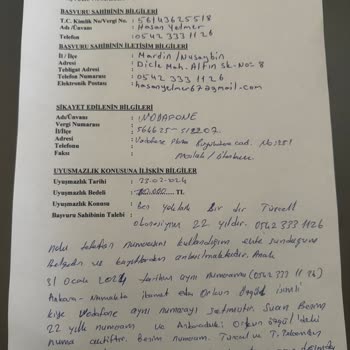 BAŞVURU SAHİBİNİN BİLGİLERİ
T.C. Kimlik No/Vergi No. : 56143625518
Adı /Ünvanı : Hasan Yelmer
Telefon : 0542 333 11 26
BAŞVURU SAHİBİNİN İLETİŞİM BİLGİLERİ
İl / İlçe : Mardin / Nusaybin
Adresi : Dicle Mah. Alfin Sk. No: 8
Tebligat Adresi
Telefon Numarası : 0542 333 11 26
Elektronik Postası : hasanyelmer67@gmail.com
ŞİKAYET EDİLENİN BİLGİLERİ
Adı/Ünvanı : VODAFONE
Vergi Numarası
İl/İlçe
Adresi : Vodafone Plaza Büyükdere cad. No: 251
Telefonu : Maslak / İstanbul
Faksı :
UYUŞMAZLIK KONUSUNA İLİŞKİN BİLGİLER
Uyuşmazlık Tarihi : 23.02.2024
Uyuşmazlık Bedeli TL
Uyuşmazlık Konusu : ben yaklaşık Bir dır Türcell
Başvuru Sahibinin Talebi : abonesiyım 22 yıldır. 0542 333 1126
Nolu telefon numarasını kullandığım ekte sunduğum
belgeden ve kayıtlardan anlaşılmaktadır. Ancak
31 Ocak 2024 tarihten aynı numaramı (0542 333 11 26)
Ankara - ikamet eden Orhan isimli
kişye Vodafone aynı numarayı satmıştır. Şuan Benim
22 yıllık numaram ve Ankaradaki Orhan
numa aktiftir. Benim numaram. Türcel ve